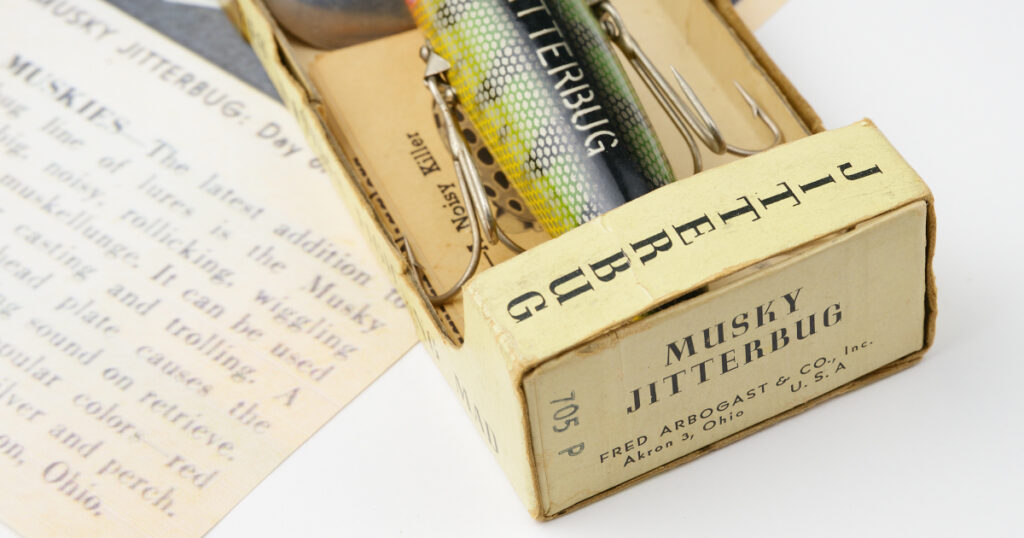 MUSKY JITTERBUG: Day
MUSKIES—The latest addition to
line of lures is the Musky
big, noisy, rollicking, wiggling
muskellunge. It can be used
casting and trolling. A
head plate causes the
sound on retrieve.
colors—red
and perch.
Ohio.
JITTERBUG
Noisy Killer
JITTERBUG
MUSKY
JITTERBUG
FRED ARBOGAST & CO., Inc.
Akron 3, Ohio U. S. A
705 P